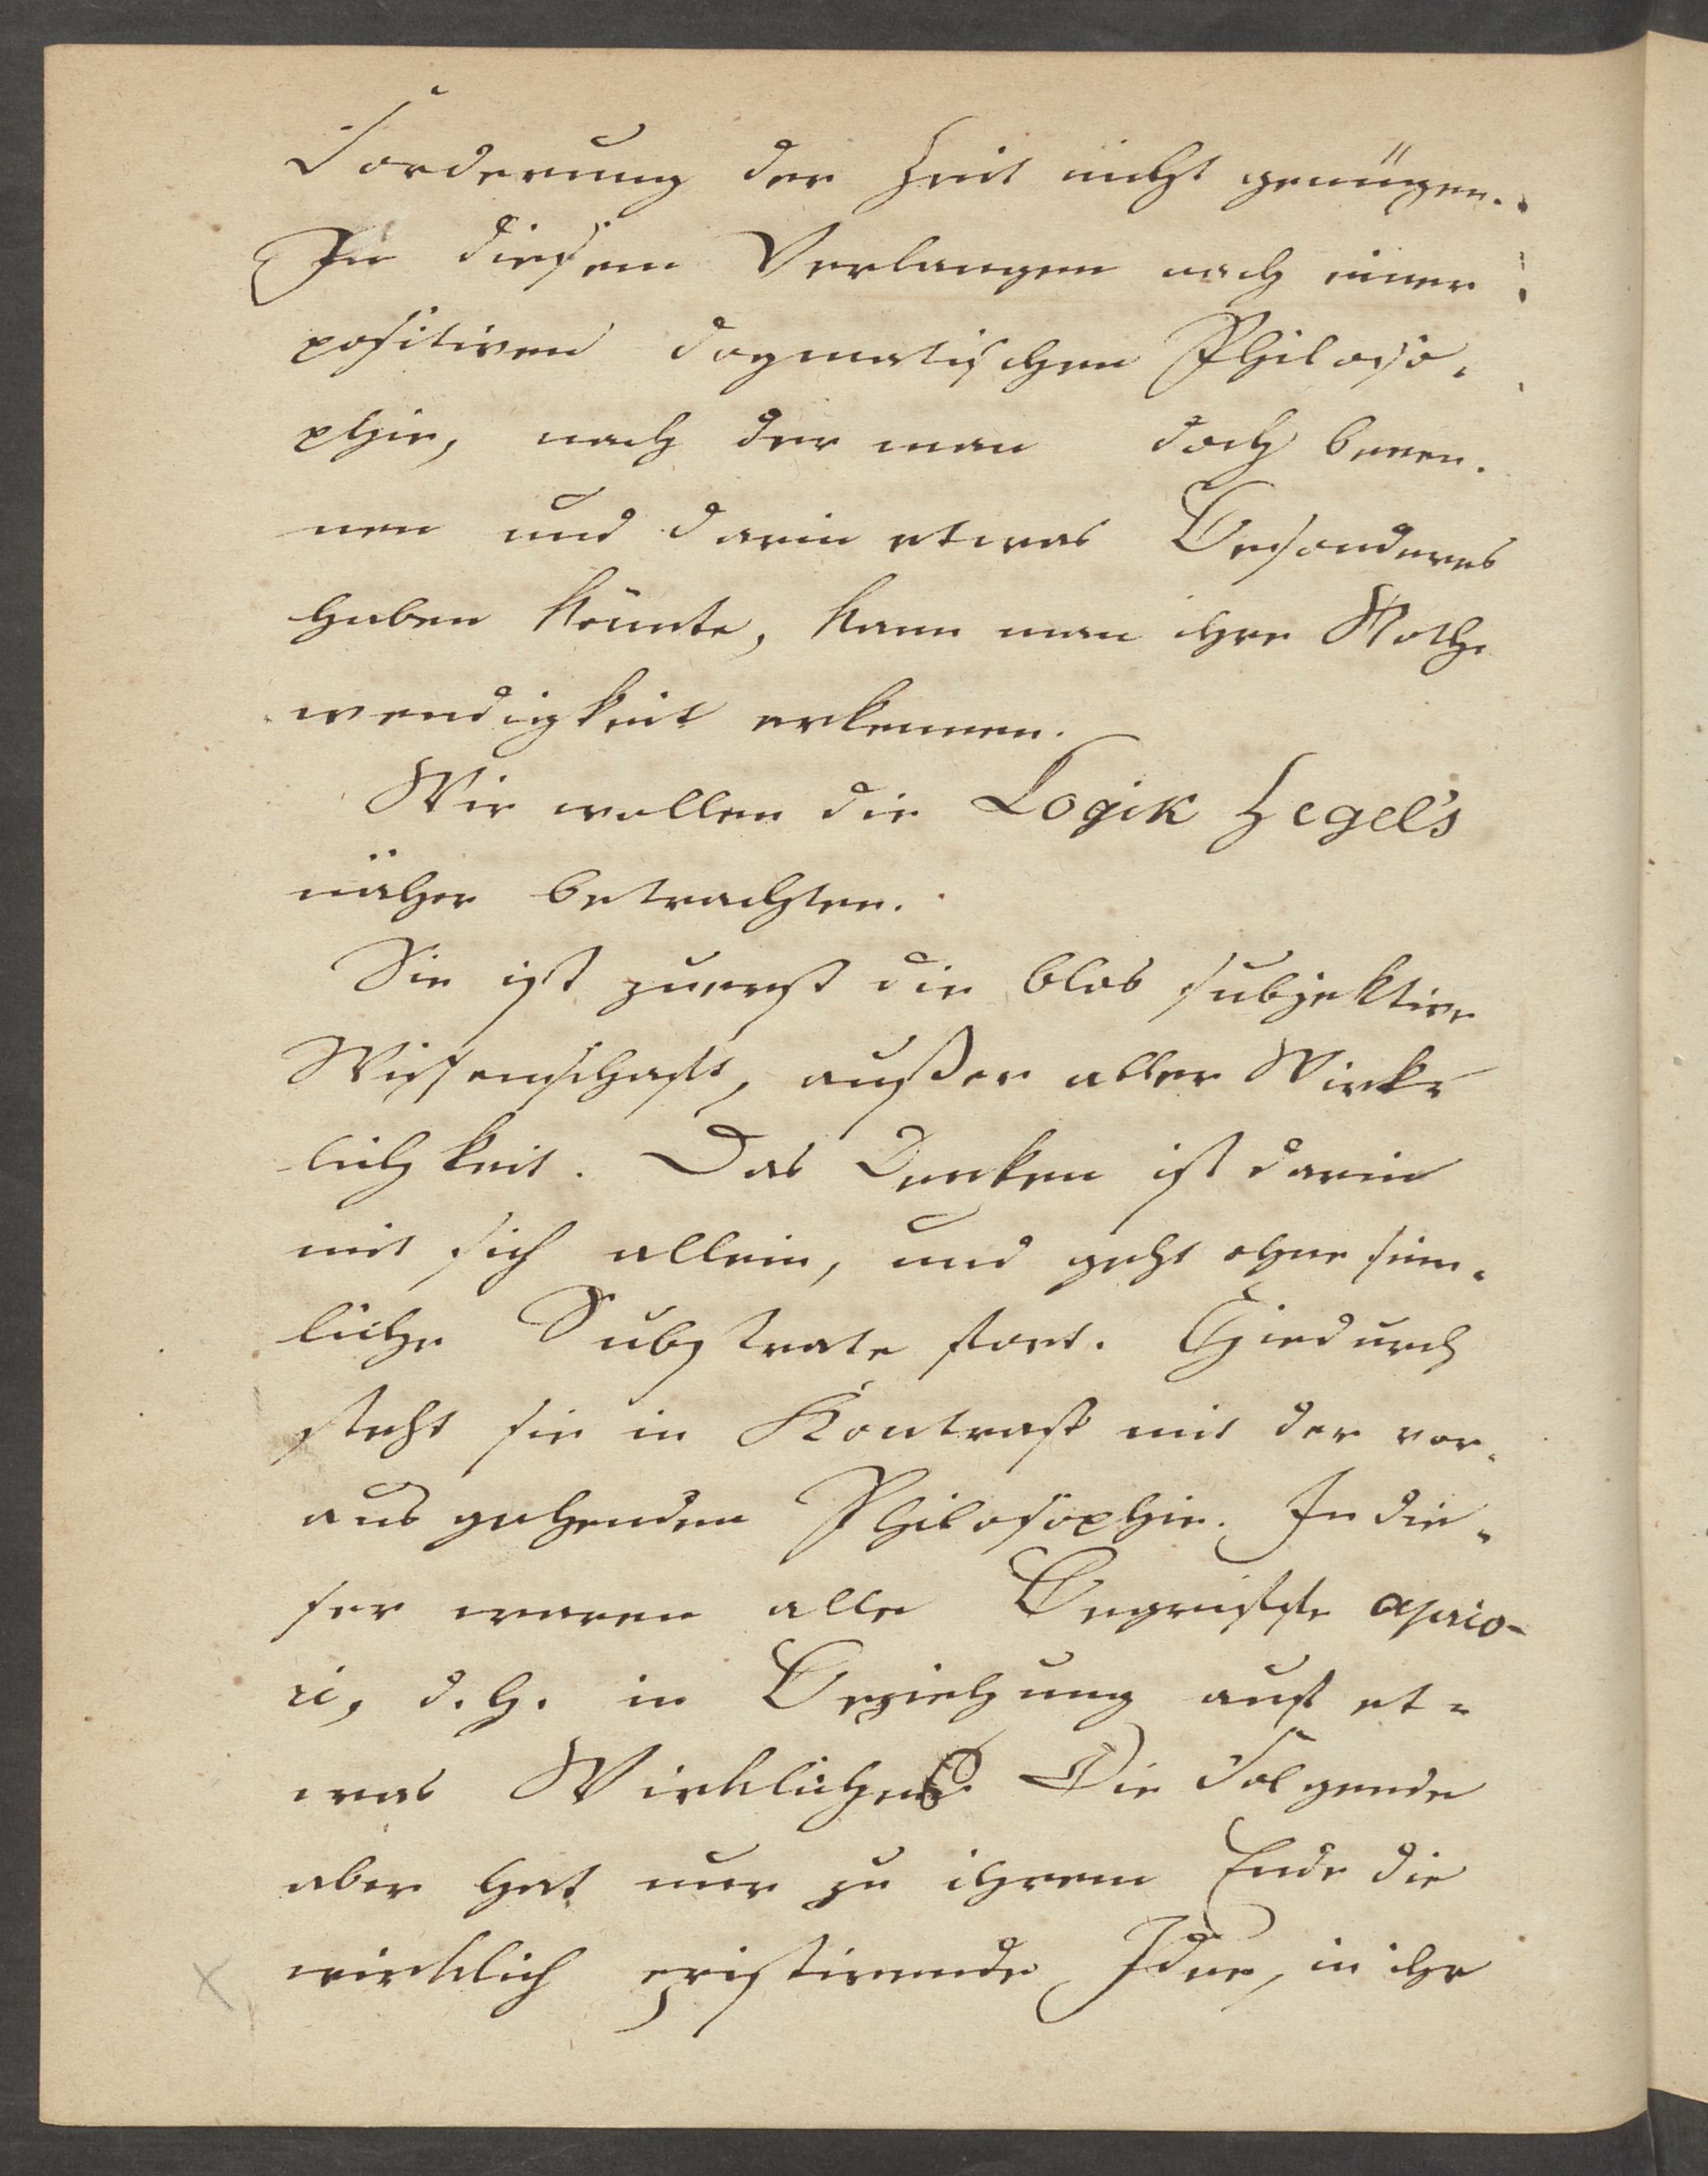 Forderung der Zeit nicht genügen.
In diesem Verlangen nach einer
positiven dogmatischen Philoso-
phie, nach der man doch bren-
nen und darin etwas Besonderes
haben könnte, kann man ihre Noth-
wendigkeit erkennen.
Wir wollen die Logik Hegel's
näher betrachten.
Sie ist zuerst die blos subjektive
Wissenschaft, außer aller Wirk-
lichkeit. Das Denken ist darin
mit sich allein, und geht ohne sinn-
liche Substrate fort. Hiedurch
steht sie in Kontrast mit der vor-
ausgehenden Philosophie. In die-
ser waren alle Begriffe aprio-
ri, d.h. in Beziehung auf et-
was Wirkliches. Die Folgende
aber hat nur zu ihrem Ende die
wirklich existirende Idee, in ihr